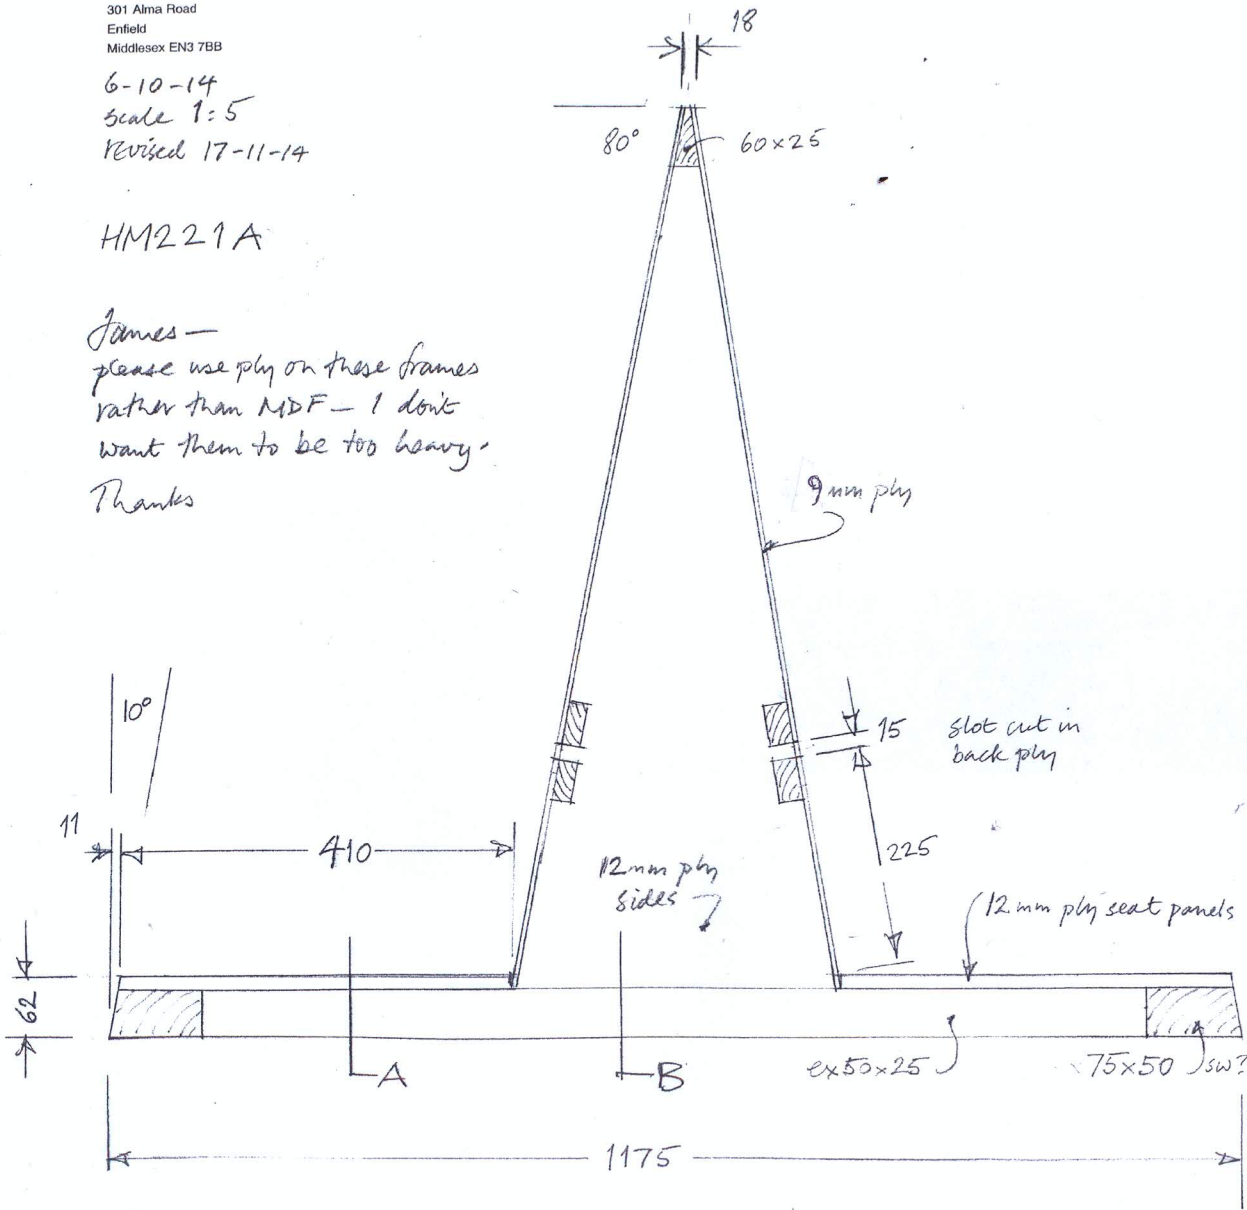 301 Alma Road
Enfield
Middlesex EN3 7BB
6-10-14
scale 1:5
revised 17-11-14
HM221A
James —
please use ply on these frames
rather than MDF — I don't
want them to be too heavy.
Thanks
18
80°
60x25
9mm ply
10°
15
slot cut in
back ply
11
410
225
12mm ply
sides
12mm ply seat panels
62
A
B
ex50x25
75x50
sw?
1175